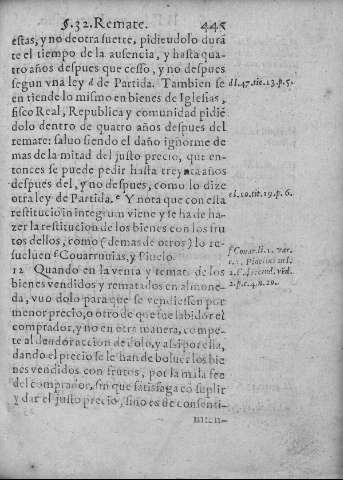 §.32. Remate. 445
estas, y no deotra suerte, pidiendolo durā
te el tiempo de la ausencia, y hasta qua-
tro años despues que cesso, y no despues
segun vna ley d de Partida. Tambien se
en tiende lo mismo en bienes de Iglesias,
fisco Real, Republica y comunidad pidiē
dolo dentro de quatro años despues del
remate: saluo siendo el daño ignorme de
mas de la mitad del justo precio, que en-
tonces se puede pedir hasta treynta años
despues del, y no despues, como lo dize
otra ley de Partida.e Y nota que con esta
restituciō in integrum viene y se ha de ha-
zer la restitucion de los bienes con los fru
tos dellos, como (demas de otros) lo re-
sueluen f Couarruuias, y Pinelo.
12 Quando en la venta y remate de los
bienes vendidos y rematados en almone-
da, vuo dolo para que se vendiessen por
menor precio, o otro de que fue sabidor el
comprador, y no en otra manera, compe-
te al deudor accion de dolo, y assi por ella,
dando el precio se le han de boluer los bie
nes vendidos con frutos, por la mala fee
del comprador, sin que satisfaga cō suplir
y dar el justo precio, sino es de consenti-
mien-
d l.47. tit. 13. p.5.
e l.10. tit. 19. p. 6.
f Couar. li. 1. var.
2.p.c.4.n.20.